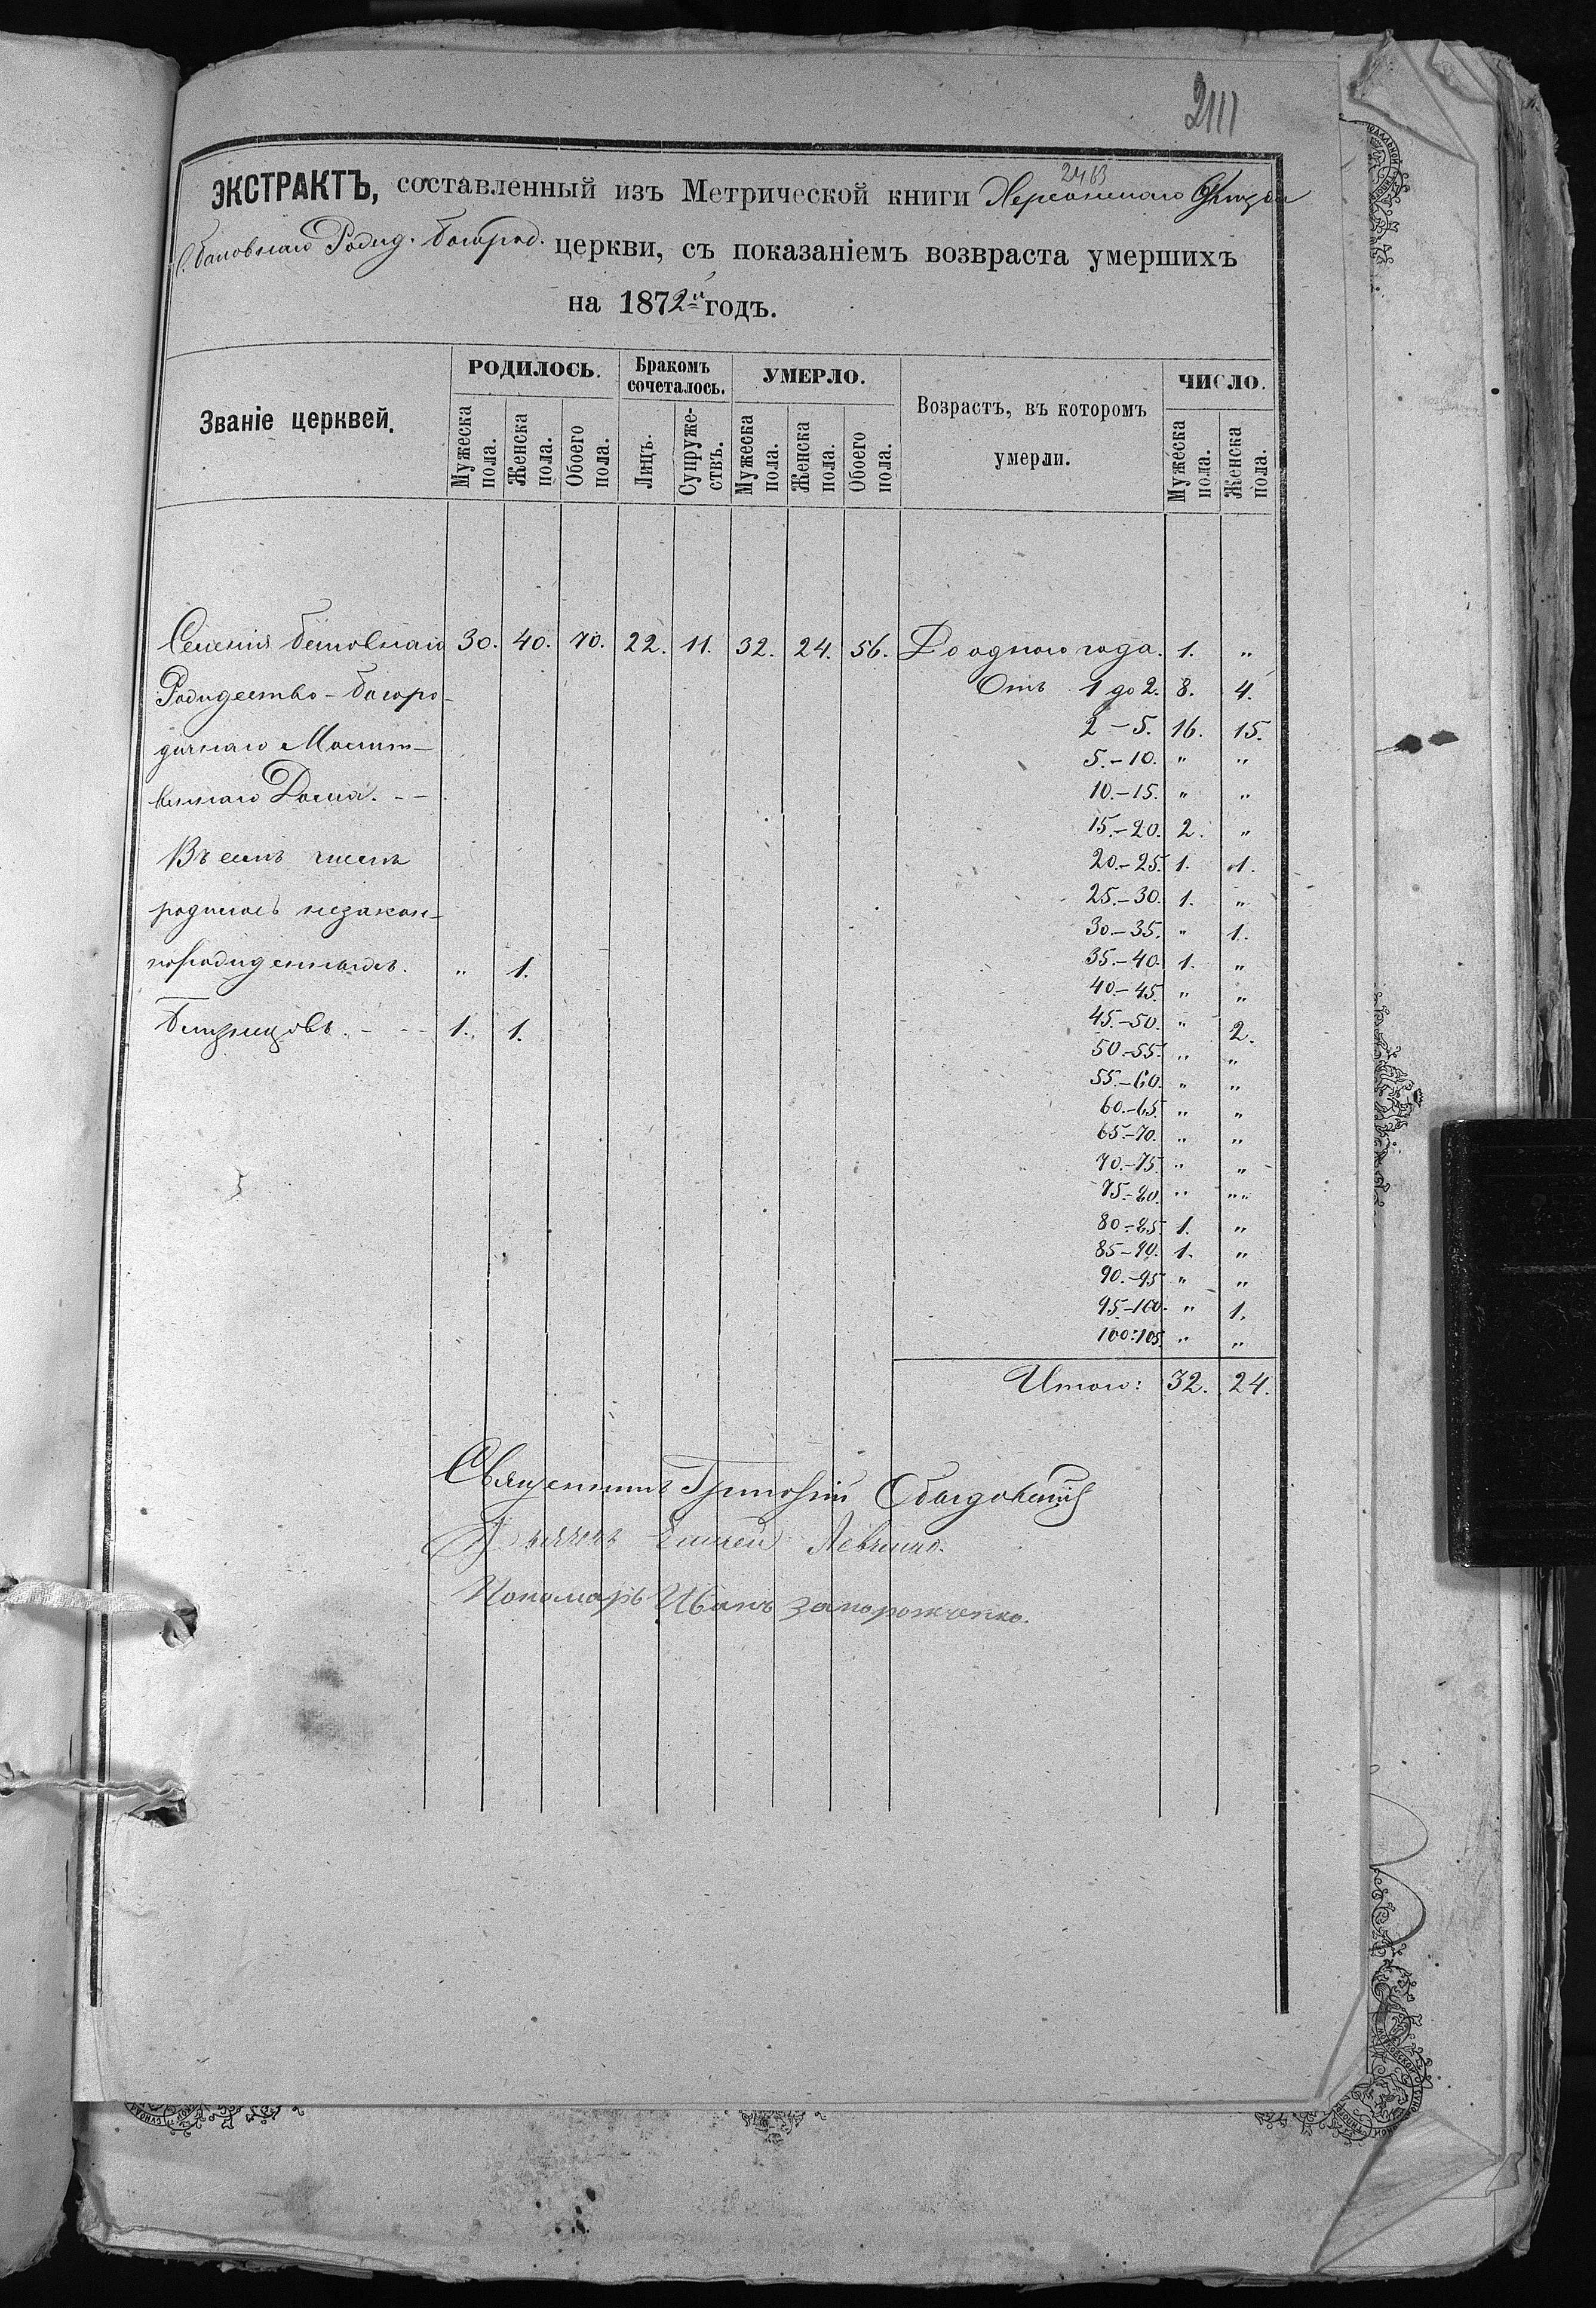 2111
2463
ЭКСТРАКТЪ, составленный изъ Метрической книги Херсонскаго Уѣзда
Рожд. Богород. церкви, съ показаніемъ возвраста умершихъ
на 1872й годъ.
Званіе церквей.
РОДИЛОСЬ.
Бракомъ сочеталось.
УМЕРЛО.
Возрастъ, въ которомъ умерли.
ЧИСЛО.
Мужеска пола.
Женска пола.
Обоего пола.
Лицъ.
Супружествъ.
Мужеска пола.
Женска пола.
Обоего пола.
Мужеска пола.
Женска пола.
Селенія 30. 40. 70. 22. 11. 32. 24. 56. До одного года. 1. „
Рождество-Богоро- Отъ 1 до 2. 8. 4.
дичнаго Молит-
2-5. 16. 15.
веннаго Дома. - -
5.-10. „ „
10.-15. „ „
15.-20. 2. „
Въ семъ числѣ
20.-25. 1. 1.
25.-30. 1. „
родилось незакон-
30.-35. „ 1.
норожденныхъ. „ 1.
35.-40. 1. „
40.-45. „ „
Близнецовъ. - - - 1. 1.
45.-50. „ 2.
50-55. „ „
55.-60. „ „
60.-65. „ „
65.-70. „ „
70.-75. „ „
75.-80. „ „„
80-85. 1. „
85-90. 1. „
90.-95 „ „
95.-100. „ 1.
100-105. „ „
Итого: 32. 24.
Священникъ Григорій
Дьячекъ Левченко.
Пономарь Иванъ Запорожченко.